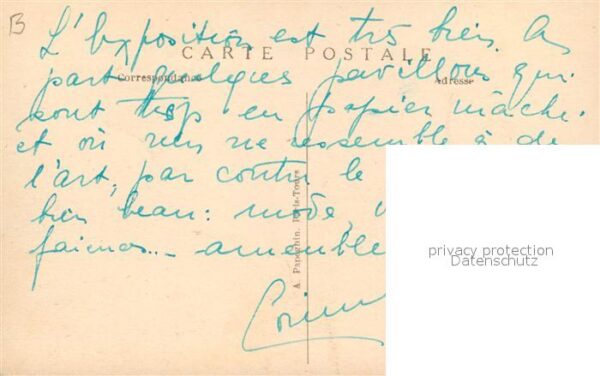 B
L'Exposition est très bien. A
CARTE POSTALE
part quelques pavillons qui
Correspondance
Adresse
sont trop en papier mâché.
et où rien ne ressemble à de
l'art, par contre le
bien beau: mode,
faiences... ameuble
A. Papeghin, Paris-Tours
privacy protection
Datenschutz